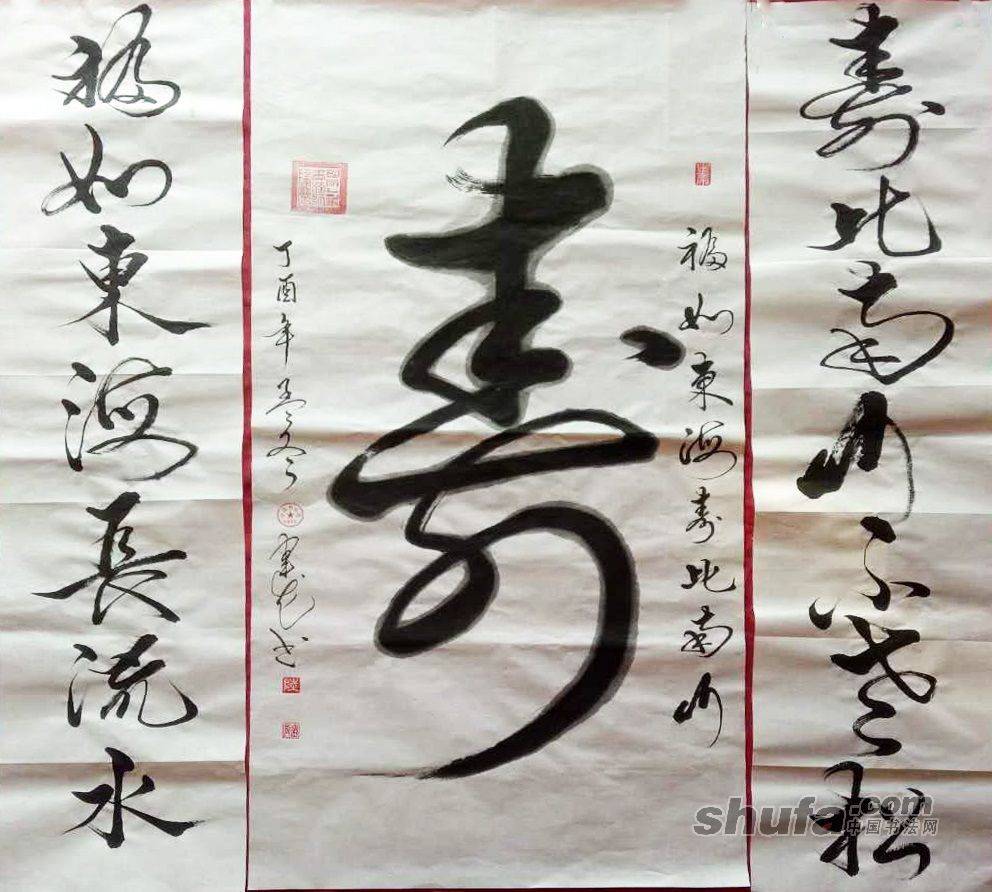 壽比南山不老松
福如東海壽比南山
壽
丁酉年孟冬
書
福如東海長流水
shufa.com
中国书法网